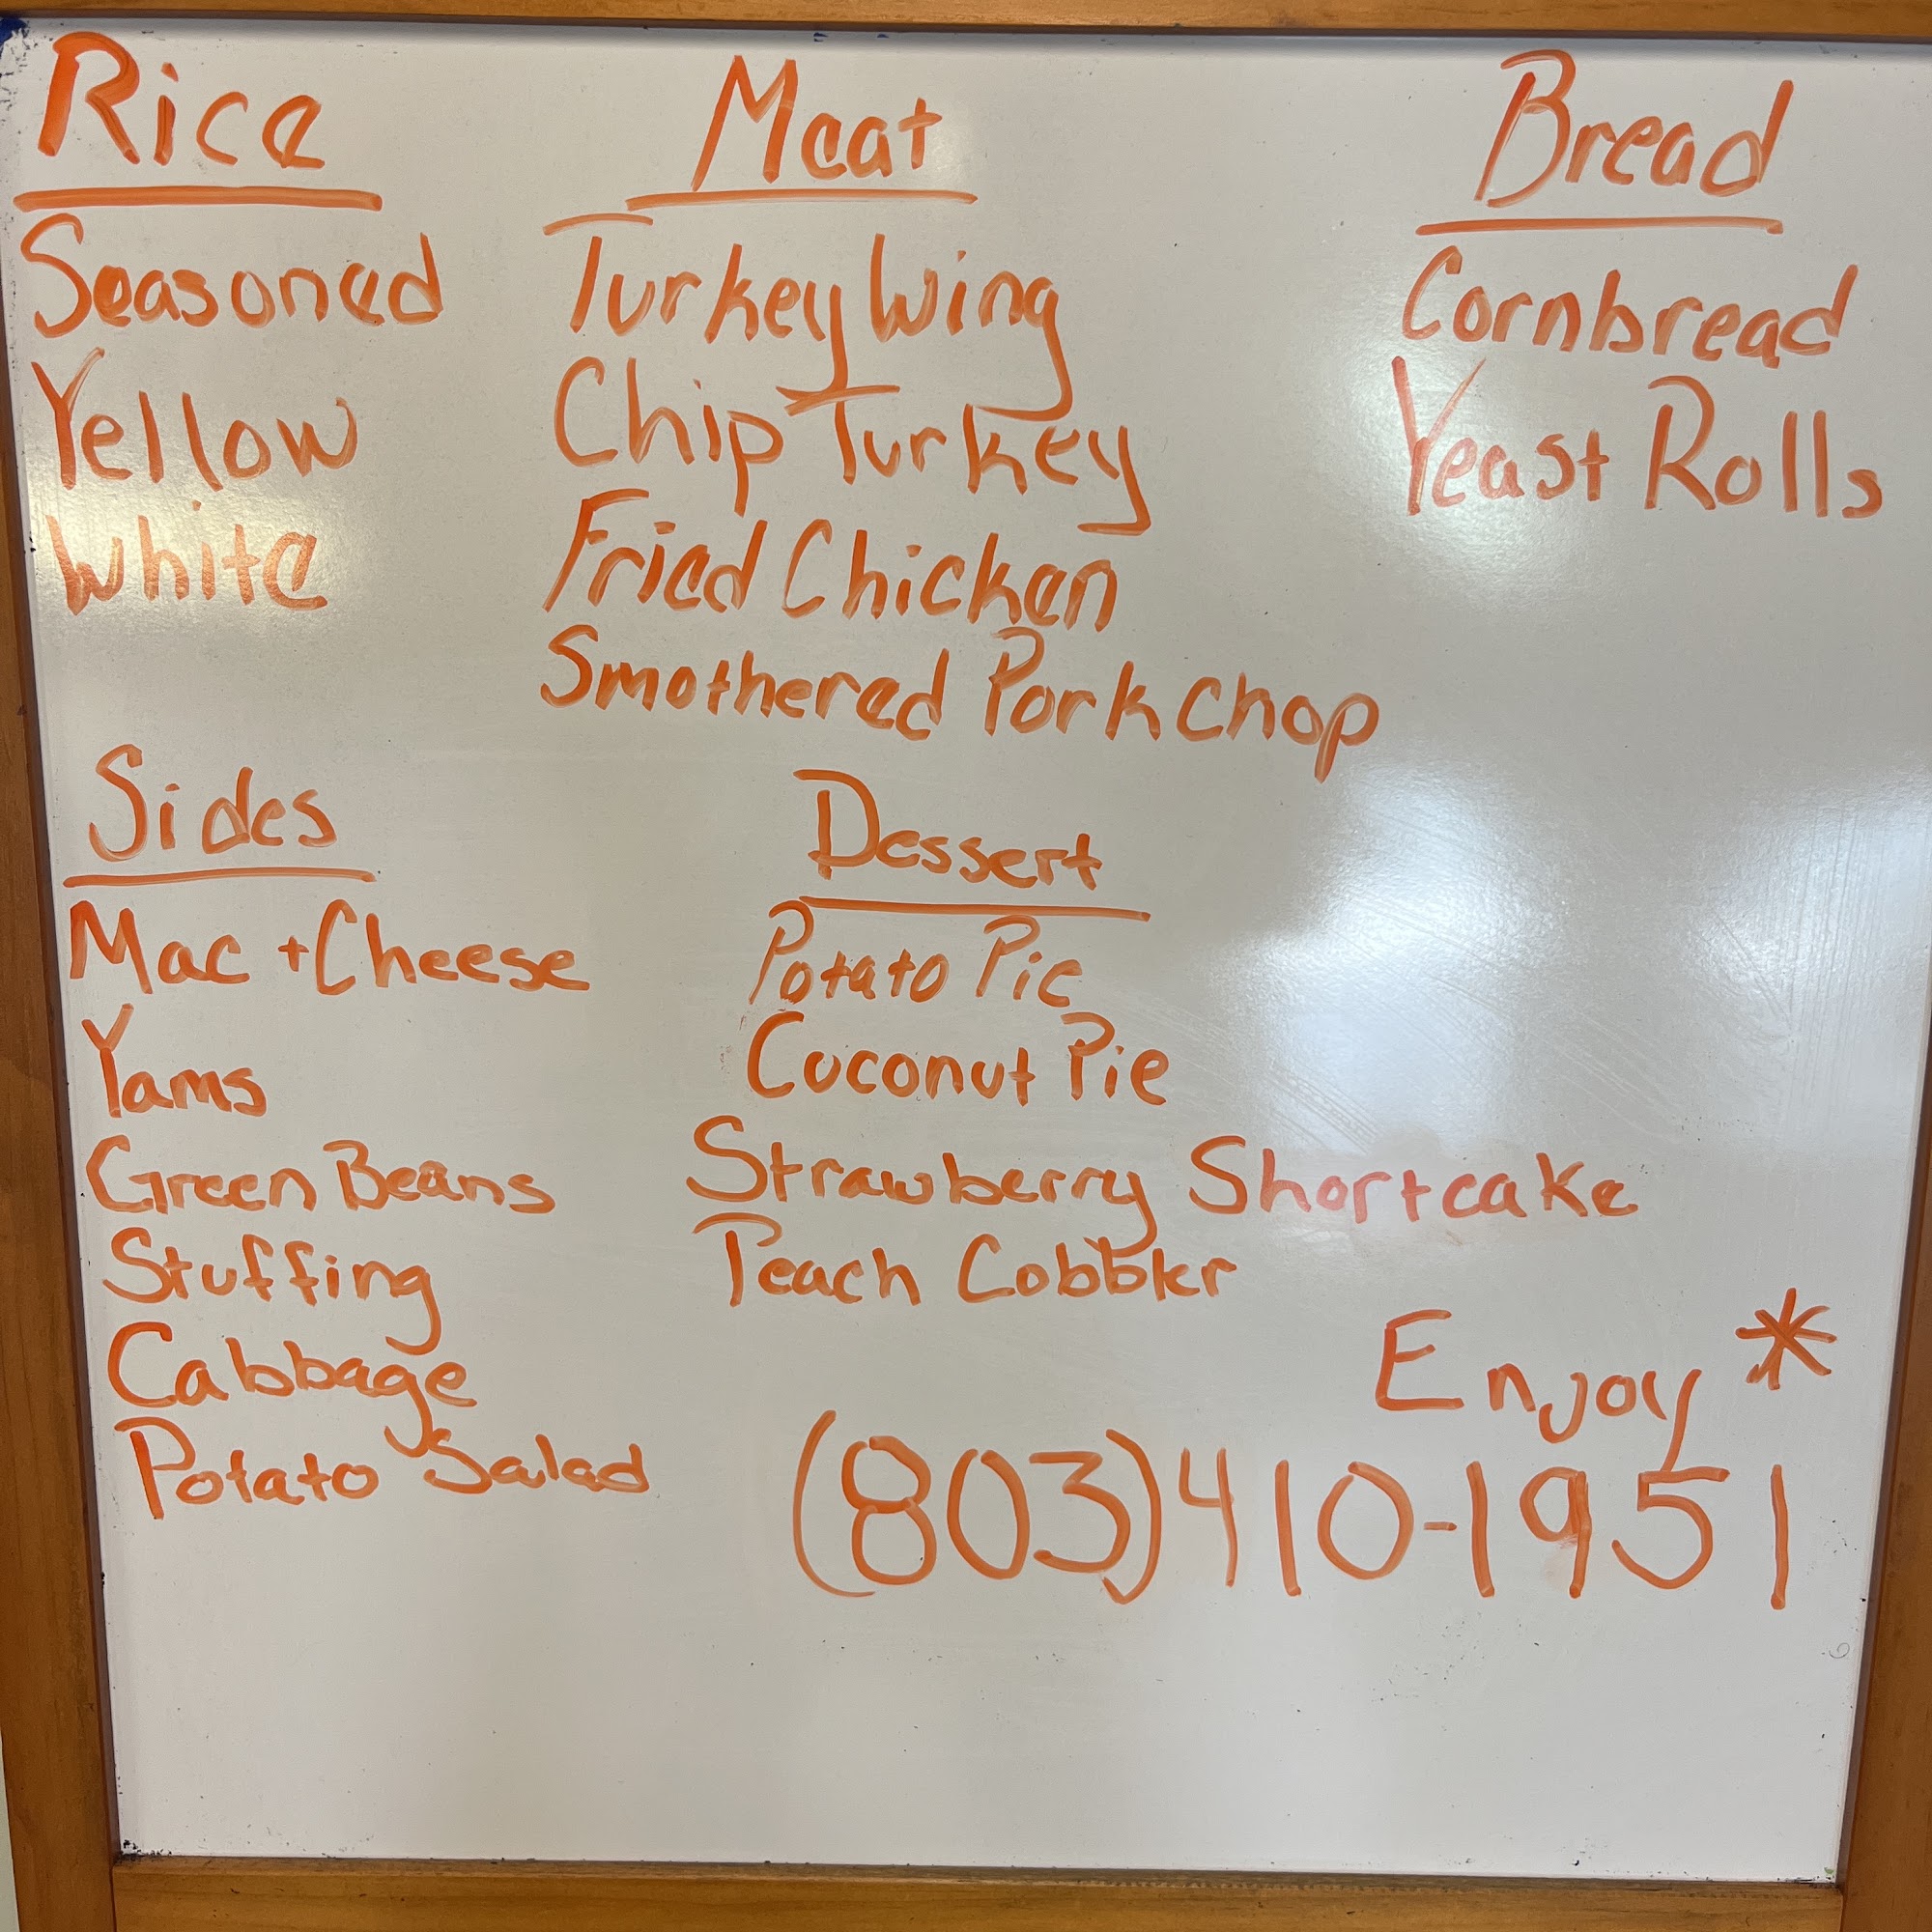 Rice
Seasoned
Yellow
White
Meat
Turkey Wing
Chip Turkey
Fried Chicken
Smothered Pork Chop
Bread
Cornbread
Yeast Rolls
Sides
Mac + Cheese
Yams
Green Beans
Stuffing
Cabbage
Potato Salad
Dessert
Potato Pie
Coconut Pie
Strawberry Shortcake
Peach Cobbler
Enjoy *
(803) 410-1951